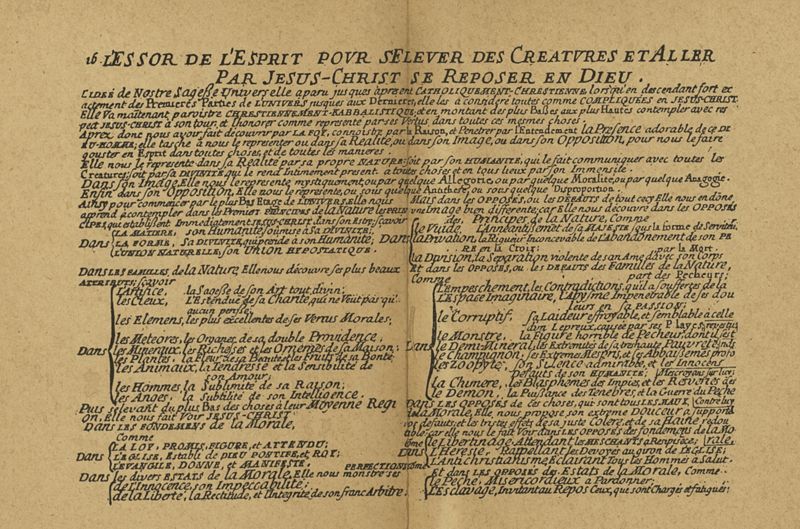 16 L'ESSOR DE L'ESPRIT POVR S'ELEVER DES CREATVRES ET ALLER
PAR JESUS-CHRIST SE REPOSER EN DIEU.
L'IDEE de Nostre Sagesse Universelle a paru jusques à present CATHOLIQUEMENT-CHRESTIENNE, lorsqu'en descendant fort ex
actement des Premieres Parties de L'UNIVERS jusques aux Dernieres, elle les a considere toutes comme COMPLIQUÉES en JESUS-CHRIST
Elle va maintenant paroistre CHRESTIENNEMENT-KABBALISTIQUE, et en montant des plus Basses aux plus Hautes contempler avec res
pect JESUS-CHRIST à son tour, et l'honorer comme representé par ses Vertus dans toutes ces mesmes choses.
Apres donc nous avoir fait decouvrir par LA FOY, connoistre par la Raison, et Penetrer par l'Entendement la Presence adorable de ce DI
EU-HOMME; elle tasche à nous le representer ou dans sa Realité, ou dans son Image, ou dans son OPPOSITION, pour nous le faire
gouster en Esprit dans toutes choses, et de toutes les manieres.
Elle nous le represente dans sa Realité par sa propre NATURE, soit par son HUMANITÉ, qui le fait communiquer avec toutes les
Creatures, soit par sa DIVINITÉ qui le rend Intimement present à toutes choses et en tous lieux par son Immensité.
Dans son Image, Elle nous le represente mystiquement, ou par quelque Allegorie, ou par quelque Moralité, ou par quelque Anagogie.
Enfin dans son OPPOSITION, Elle nous le represente, ou sous quelque Antithese, ou sous quelque Disproportion.
Ainsy pour commencer par le plus Bas Etage de L'UNIVERS, Elle nous
aprend à contempler dans les Premiers PRINCIPES de la Nature les PRIN
CIPES, qui establissent Immediatement JESUS-CHRIST dans son Estre, sçavoir
Dans
LA MATIERE, son Humanité soumise à sa DIVINITÉ;
LA FORME, Sa DIVINITÉ, qui preside à son Humanité;
L'UNION NATURELLE, son UNION HYPOSTATIQUE.
Dans LES FAMILLES, de la Nature, Elle nous découvre ses plus beaux
ATTRIBUTS; sçavoir
Dans
L'artifice, la Sagesse de son Art tout divin;
les Cieux, L'Estendue de sa Charité, qui ne Veut pas qu'
aucun perisse;
les Elemens, les plus excellentes de ses Vertus Morales;
les Meteores, les Organes, de sa, double Providence,
les Mineraux, les Richesses et les Ornemens de sa Maison;
les Plantes, les Fleurs de sa Beauté, et les Fruits de sa Bonté
les Animaux, la Tendresse et la Sensibilité de
son Amour,
les Hommes, la Sublimité de sa Raison;
les Anges, la Subtilité de son Intelligence.
Puis s'elevant du plus Bas des choses à leur Moyenne Regi
on, Elle nous fait Voir JESUS-CHRIST,
DANS LES FONDEMENS de la Morale,
Comme
Dans
LA LOY, PROMIS, FIGURE, et ATTENDU;
L'EGLISE, Establi de DIEU PONTIFE, et ROY;
L'EVANGILE, DONNE, et MANIFESTÉ.
Dans les divers ESTATS de la Morale, Elle nous monstre ses
PERFECTIONS comme
de L'Innocence, son IMPECCABILITÉ;
de la Liberté, la Rectitude, et l'Integrité de son franc Arbitre.
Mais dans les OPPOSÉS, ou les DEFAUTS de tout cecy Elle nous en donne
une Image bien differente; car Elle nous découvre dans les OPPOSÉS
des Principes de la Nature, comme
Dans
le Vuide, L'Anneantissement de sa MAJESTÉ sous la forme de Serviteur,
la Privation, la Rigueur Inconcevable de L'Abandonement de son PE
RE en la Croix;
par la Mort.
la Division, la Separation violente de son Ame d'avec son Corps
Et dans les OPPOSÉS, ou les DEFAUTS des Familles de la Nature,
Comme
part des Pecheurs;
Dans
L'Empeschement, les Contradictions, qu'il a souffertes de la
L'Espace Imaginaire, L'Abysme Impenetrable de ses dou
leurs en sa PASSION;
le Corruptif, sa Laideur effroyable, et semblable à celle
d'un Lepreux, causée par ses Playes
le Monstre, la Figure horrible de Pecheur, dont il s'est
le Demi-Mineral, les Extremités de sa profonde Pauvreté
le Champignon, ses Extremes Mespris, et les Abbaissemens profo
les Zoophytes, son SILENCE admirable, et les Innocens
Defauts de son HUMANITÉ;
la Chimere, les Blasphemes des Impies, et les Resveries des
le Demon, la Puissance des Tenebres, et la Guerre du Peché
DANS LES OPPOSÉS DE CES choses, qui sont toutes LES MAUX Contre luy
de la Morale, Elle nous propose son extreme DOUCEUR à supporter
nos defauts, et les tristes effets de sa juste Colere, et de sa HAINE redou
table: car elle nous le fait Voir dans LES OPPOSÉS des fondemens de la Mo
rale,
Dans
le LIBERTINAGE, Attendant les MESCHANTS à Repentance;
L'HERESIE, Rappellant les Devoyés au giron de L'EGLISE;
L'ANTICHRISTIANISME, Eclairant Tous les Hommes à Salut.
Et dans LES OPPOSÉS des ESTATS de la MORALE, Comme
le Peché, MISERICORDIEUX à Pardonner;
L'ESCLAVAGE, Invitant au REPOS Ceux, qui sont Chargés et fatigués;